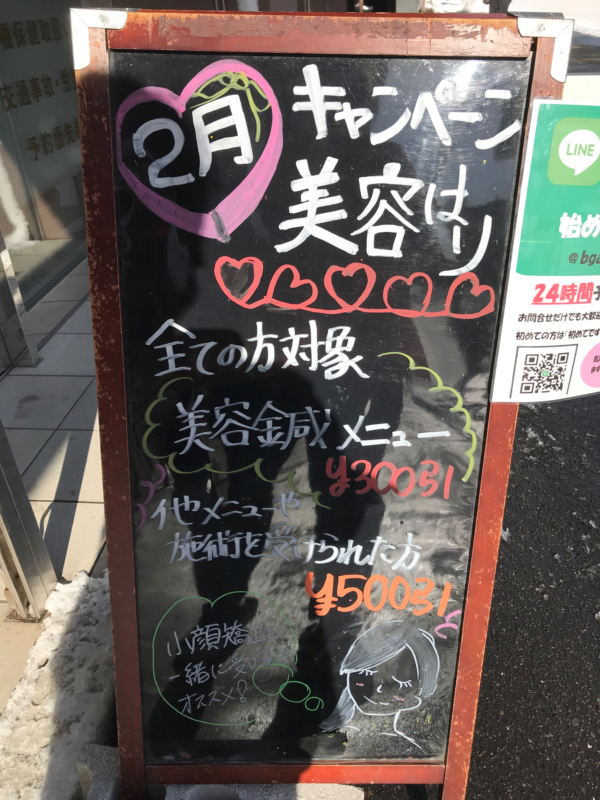 2月
キャンペーン
美容はり
全ての方対象
美容鍼メニュー
¥300引
他メニューや
施術を受けられた方
¥500引
小顔矯正
一緒に
オススメ!
LINE
始め
@bga
24時間
お問合せだけでも大歓迎
初めての方は「初めてです
交通事故・労
予約優先